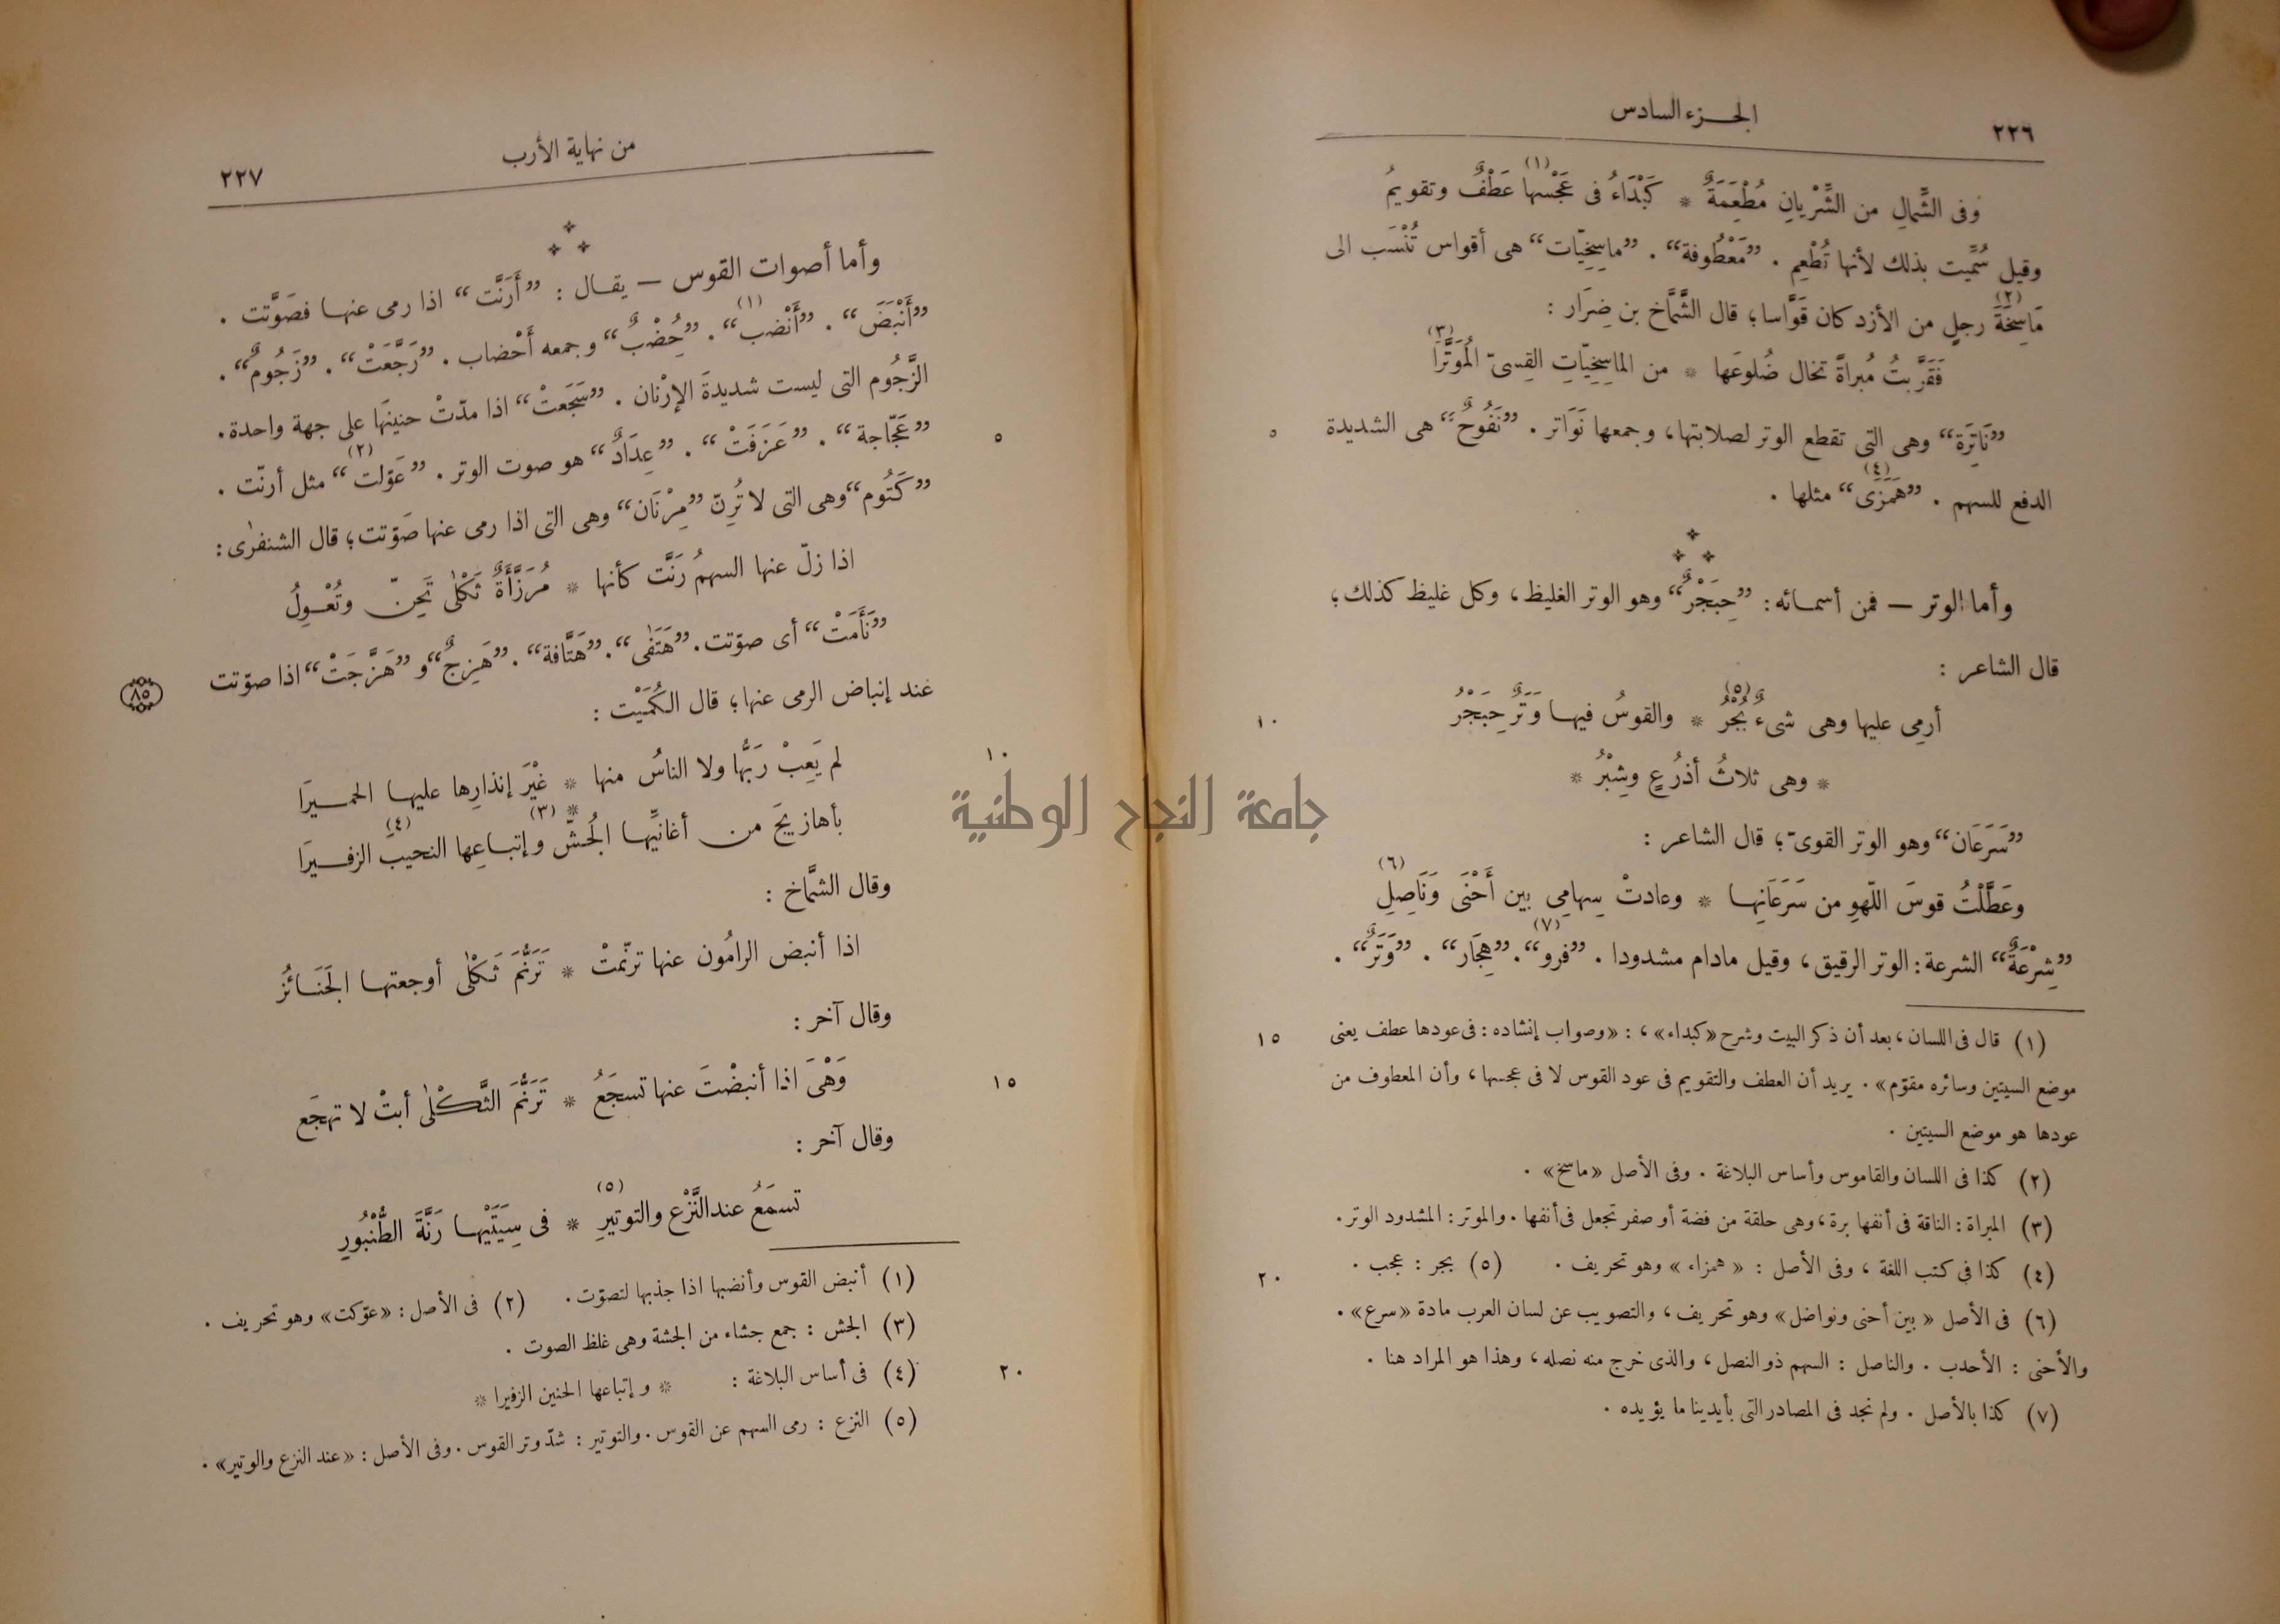 الجزء السادس
٢٢٦
وفى الشَّمالِ من الشَّرْيانِ مُطْعَمَةٌ * كَبْدَاءُ فى عَجْسها(١) عَطْفٌ وتقويمُ
وقيل سُمِّيت بذلك لأنها تُطْعِم . "مَعْطُوفة" . "ماسِخِيّات" هى أقواس تُنْسَب الى
مَاسِخَةَ(٢) رجلٍ من الأزد كان قَوَّاسا؛ قال الشَّمَّاخ بن ضِرَار :
فَقَرَّبتُ مُبراةً تخال ضُلوعَها * من الماسِخِيّاتِ القِسىّ المُوَتَّرا(٣)
"نَاتِرَة" وهى التى تقطع الوتر لصلابتها، وجمعها نَوَاتر . "نَفُوحٌ" هى الشديدة
٥
الدفع للسهم . "هَمَزَى(٤)" مثلها .
وأما الوتر — فمن أسمائه : "حِبَجْرٌ" وهو الوتر الغليظ، وكل غليظ كذلك؛
قال الشاعر :
أرمِى عليها وهى شىءٌ بُجْرُ(٥) * والقوسُ فيها وَتَرٌ حِبَجْرُ
١٠
* وهى ثلاثُ أذرُعٍ وشِبْرُ *
"سَرَعَان" وهو الوتر القوىّ؛ قال الشاعر :
وعَطَّلْتُ قوسَ اللّهوِ من سَرَعَانِها * وعادتْ سِهامِى بين أَحْنَى وَنَاصِلِ(٦)
"شِرْعَةٌ" الشرعة : الوتر الرقيق، وقيل مادام مشدودا . "فرو(٧)" . "هِجَار" . "وَتَرٌ" .
(١) قال فى اللسان، بعد أن ذكر البيت وشرح «كبداء»، : «وصواب إنشاده : فى عودها عطف يعنى
١٥
موضع السيتين وسائره مقوّم» . يريد أن العطف والتقويم فى عود القوس لا فى عجسها، وأن المعطوف من
عودها هو موضع السيتين .
(٢) كذا فى اللسان والقاموس وأساس البلاغة . وفى الأصل «ماسخ» .
(٣) المبراة : الناقة فى أنفها برة، وهى حلقة من فضة أو صفر تجعل فى أنفها . والموتر : المشدود الوتر .
(٤) كذا فى كتب اللغة، وفى الأصل : «همزاء» وهو تحريف . (٥) بجر : عجب .
٢٠
(٦) فى الأصل «بين أحنى ونواضل» وهو تحريف، والتصويب عن لسان العرب مادة «سرع» .
والأحنى : الأحدب . والناصل : السهم ذو النصل، والذى خرج منه نصله، وهذا هو المراد هنا .
(٧) كذا بالأصل . ولم نجد فى المصادر التى بأيدينا ما يؤيده .
من نهاية الأرب
٢٢٧
وأما أصوات القوس — يقال : "أَرَنَّت" اذا رمى عنها فصَوَّتت .
"أَنْبَضَ" . "أَنْضب(١)" . "حُضْبٌ" وجمعه أَحْضاب . "رَجَّعَتْ" . "زَجُومٌ" .
الزَّجُوم التى ليست شديدةَ الإرْنان . "سَجَعتْ" اذا مدّتْ حنينَها على جهة واحدة .
"عَجّاجة" . "عَزَفَتْ" . "عِدَادٌ" هو صوت الوتر . "عَوّلت(٢)" مثل أرنّت .
٥
"كَتُوم" وهى التى لا تُرِنّ "مِرْنَان" وهى التى اذا رمى عنها صَوّتت؛ قال الشنفرٰى :
اذا زلّ عنها السهمُ رَنَّت كأنها * مُرَزَّأَةٌ ثَكْلٰى تَحِنّ وتُعْوِلُ
"نَأَمَتْ" أى صوّتت . "هَتَفٰى" . "هَتَّافة" . "هَزِجٌ" و "هَزَّجَتْ" اذا صوّتت
٨٥
عند إنباض الرمى عنها؛ قال الكُمَيْت :
لم يَعِبْ رَبّها ولا الناسُ منها * غيْرَ إنذارِها عليها الحميرَا
١٠
بأهازيجَ من أغانيِّها الجُشّ(٣) * وإتباعِها النحيبَ(٤) الزفيرَا
وقال الشمَّاخ :
اذا أنبض الرامُون عنها ترنّمتْ * تَرَنُّمَ ثَكْلٰى أوجعتها الجَنَائزُ
وقال آخر :
وَهْىَ اذا أنبضْتَ عنها تسجَعُ * تَرَنُّمَ الثَّكْلٰى أبتْ لا تهجَع
١٥
وقال آخر :
تسمَعُ عند النَّزْع والتوتيرِ(٥) * فى سِيَتَيْها رَنَّةَ الطُّنْبُورِ
(١) أنبض القوس وأنضبها اذا جذبها لتصوّت . (٢) فى الأصل : «عوّكت» وهو تحريف .
(٣) الجش : جمع جشاء من الجشة وهى غلظ الصوت .
(٤) فى أساس البلاغة : * وإتباعها الحنين الزفيرا *
٢٠
(٥) النزع : رمى السهم عن القوس . والتوتير : شدّ وتر القوس . وفى الأصل : «عند النزع والوتير» .
جامعة النجاح الوطنية